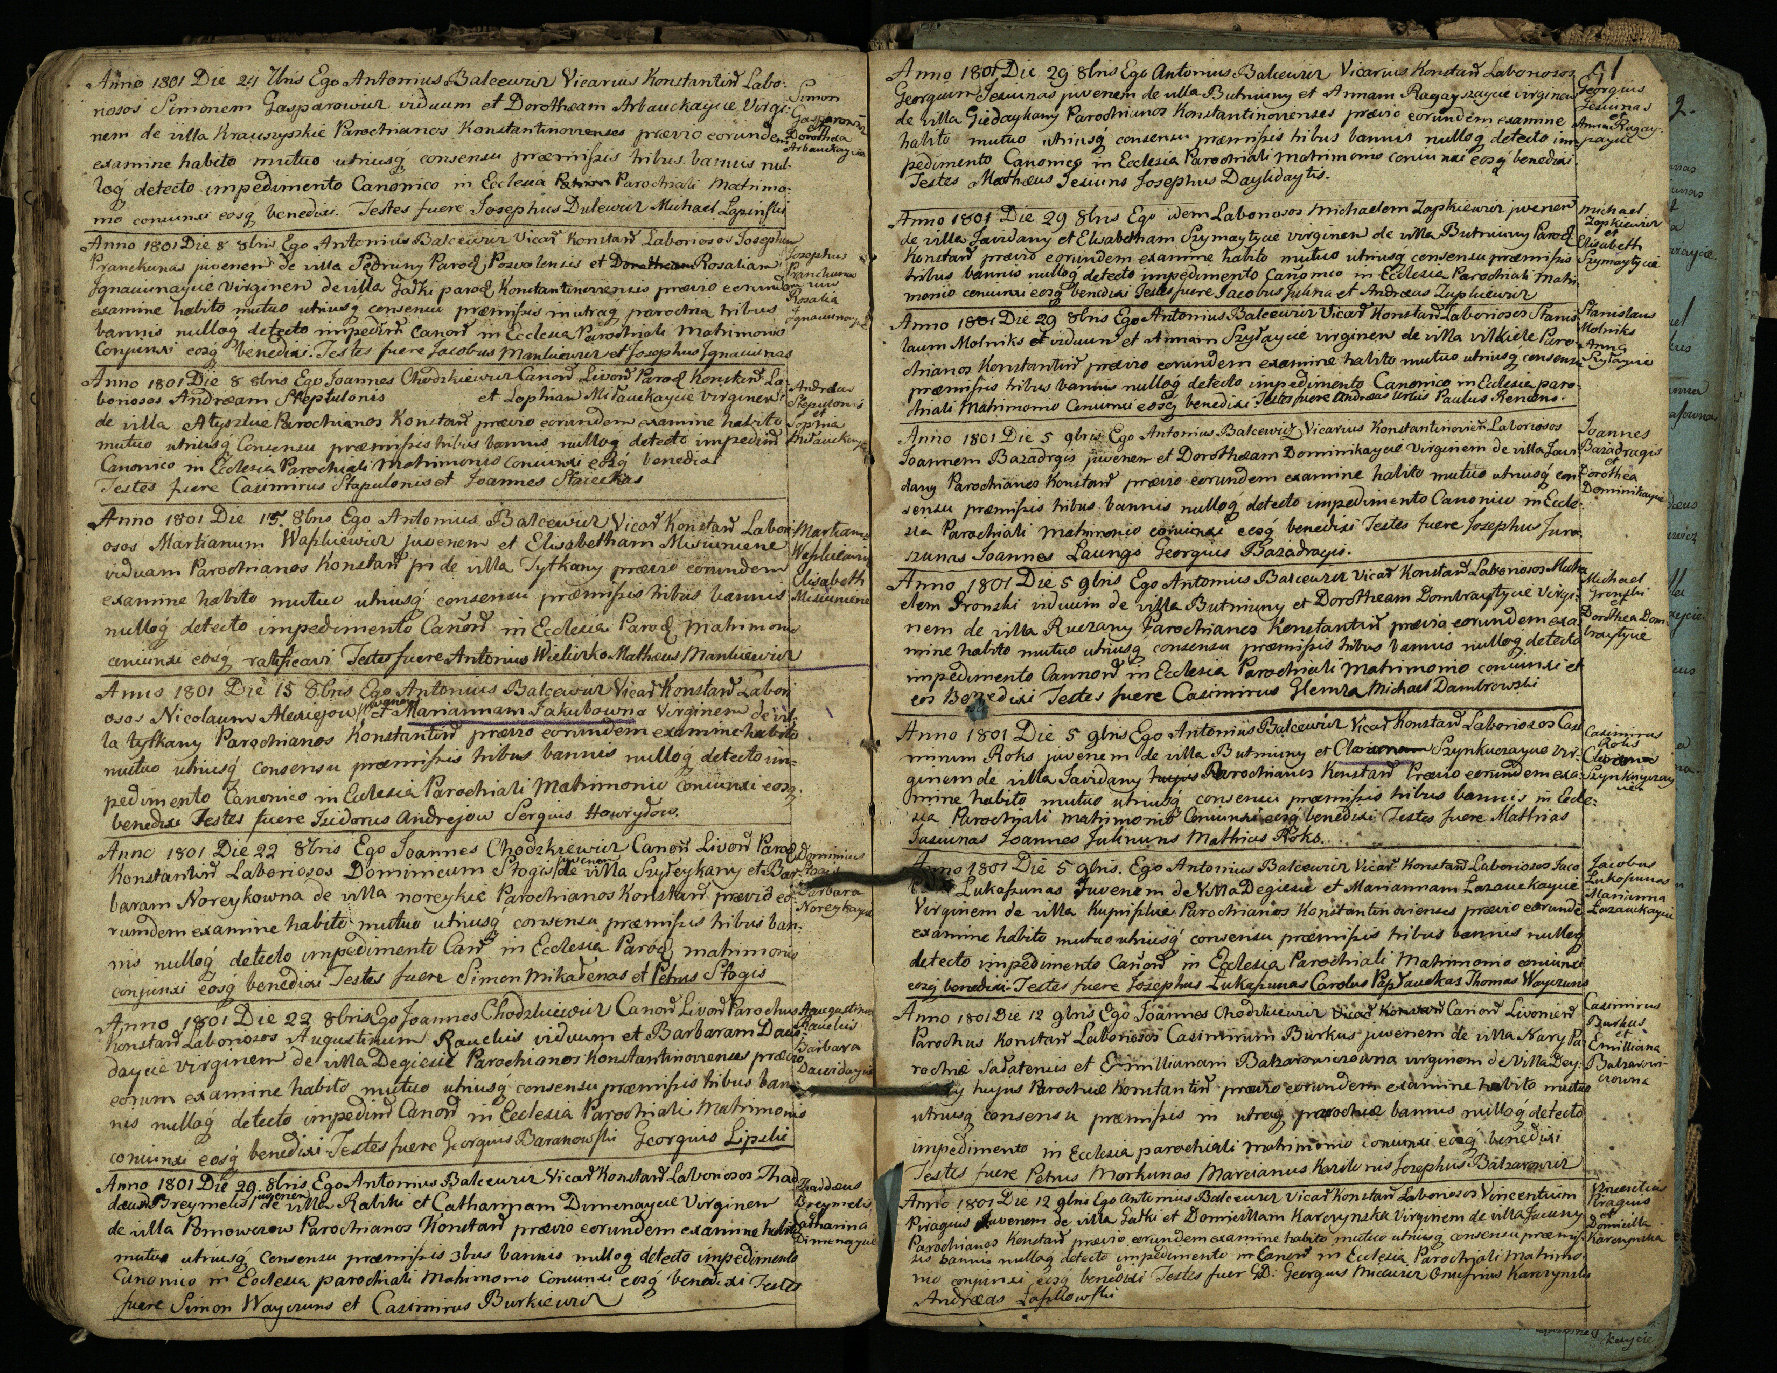 Anno 1801 Die 24 7bris Ego Antonius Balcewicz Vicarius Konstantin̄ Labo-
riosos Simonem Gasparowicz viduum et Dorotheam Arbauckaycie Virgi-
nem de villa Krauszyszkie Parochianos Konstantinovienses prævio eorundem
examine habito mutuo utriusq̄ consensu præmissis tribus bannis nul-
loq̄ detecto impedimento Canonico in Ecclesia Parochiali Matrimo-
nio coniunxi eosq̄ benedixi. Testes fuere Josephus Dulewicz Michael Łapinski
Simon
Gasparowicz
et
Dorothea
Arbauckaycie
Anno 1801 Die 8 8bris Ego Antonius Balcewicz Vicar̄ Konstan̄ Laboriosos Josephum
Pranckunas juvenem de villa Pedruny Paroq̄ Poswolensis et Rosaliam
Ignacunaycie Virginem de villa Gałki paroq̄ Konstantinoviensis prævio eorundem
examine habito mutuo utriusq̄ consensu præmissis in utraq̄ parochia tribus
bannis nulloq̄ detecto impedim̄ Canon̄ in Ecclesia Parochiali Matrimonio
Conjunxi eosq̄ benedixi. Testes fuere Jacobus Mankiewicz et Josephus Ignacunas
Josephus
Pranckunas
cum
Rosalia
Ignacunaycie
Anno 1801 Die 8 8bris Ego Joannes Chodzkiewicz Canon̄ Livon̄ Paroq̄ Konstan̄ La-
boriosos Andræam Steptulonis et Zophiam Mitauckaycie virginem
de villa Atyszkie Parochianos Konstan̄ prævio eorundem examine habito
mutuo utriusq̄ Consensu præmissis tribus bannis nulloq̄ detecto impedim̄
Canonico in Ecclesia Parochiali Matrimonio Coniunxi eosq̄ benedixi
Testes fuere Casimirus Stapulonis et Joannes Staieckas
Andreas
Stepulonis
et
Sophia
Mitauckayc
Anno 1801 Die 15 8bris Ego Antonius Balcewicz Vicar̄ Konstan̄ Labori-
osos Martianum Waszkiewicz juvenem et Elisabetham Misiuniene
viduam Parochianos Konstan̄ de villa Tytkany prævio eorundem
examine habito mutuo utriusq̄ consensu præmissis tribus bannis
nulloq̄ detecto impedimento Canon̄ in Ecclesia Paroq̄ Matrimonio
coniunxi eosq̄ ratificavi Testes fuere Antonius Wielicko Matheus Mankiewicz
Martianus
Waszkiewicz
Elisabeth
Misiuniene
Anno 1801 Die 15 8bris Ego Antonius Balcewicz Vicar̄ Konstan̄ Labori-
osos Nicolaum Alexiejow juvenem et Mariannam Jakubowna Virginem de vil-
la Tytkany Parochianos Konstantin̄ prævio eorundem examine habito
mutuo utriusq̄ consensu præmissis tribus bannis nulloq̄ detecto im-
pedimento Canonico in Ecclesia Parochiali Matrimonio coniunxi eosq̄
benedixi Testes fuere Isidorus Andrejow Sergius Hawryłow.
Anno 1801 Die 22 8bris Ego Joannes Chodzkiewicz Canon̄ Livon̄ Paroq̄
Konstantin̄ Laboriosos Dominicum Stogis juvenem de villa Szyleykany et Bar-
baram Noreykowna de villa noreykie Parochianos Konstan̄ prævio eo-
rumdem examine habito mutuo utriusq̄ consensu præmissis tribus ban-
nis nulloq̄ detecto impedimento Can̄ in Ecclesia Paroq̄ matrimonio
conjunxi eosq̄ benedixi Testes fuere Simon Mikałenas et Petrus Stogis
Dominicus
Stogis
Barbara
Noreykayc
Anno 1801 Die 22 8bris Ego Joannes Chodzkiewicz Canon̄ Livon̄ Parochus
Konstan̄ Laboriosos Augustinum Rauckis viduum et Barbaram Dawi-
daycie virginem de villa Degiesie Parochianos Konstantinovienses prævio
eorum examine habito mutuo utriusq̄ consensu præmissis tribus ban-
nis nulloq̄ detecto impedim̄ Canon̄ in Ecclesia Parochiali Matrimonio
coniunxi eosq̄ benedixi. Testes fuere Georgius Baranowski Georgius Lipskie
Augustinus
Raückis
Barbara
Dawidaycie
Anno 1801 Die 29 8bris Ego Antonius Balcewicz Vicar̄ Konstan̄ Laboriosos Thad-
deum Breymelis juvenem de villa Ratki et Catharinam Dimenaycie Virginem
de villa Pomowszow Parochianos Konstan̄ prævio eorundem examine habito
mutuo utriusq̄ Consensu præmissis 3bus bannis nulloq̄ detecto impedimento
Canonico in Ecclesia parochiali Matrimonio Coniunxi eosq̄ benedixi Testes
fuere Simon Wayczuns et Casimirus Burkiewicz
Thaddæus
Breymelis
et
Catharina
Dimenaycie
51
Anno 1801 Die 29 8bris Ego Antonius Balcewicz Vicarius Konstan̄ Laboriosos
Georgium Jesiunas juvenem de villa Butniuny et Annam Ragayszaycie virginem
de villa Giedaykany Parochianos Konstantinovienses prævio eorundem examine
habito mutuo utriusq̄ consensu præmissis tribus bannis nulloq̄ detecto im-
pedimento Canonico in Ecclesia Parochiali Matrimonio coniunxi eosq̄ benedixi
Testes Matheus Jesiuns Josephus Daylidaytis.
Georgius
Jesiunas
et
Anna Ragay-
szaycie
Anno 1801 Die 29 8bris Ego idem Laboriosos Michaelem Zapkiewicz juvenem
de villa Jawidany et Elisabetham Szymaytycie virginem de villa Butniuny Paroq̄
Konstan̄ prævio eorundem examine habito mutuo utriusq̄ consensu præmissis
tribus bannis nulloq̄ detecto impedimento Canonico in Ecclesia Parochiali Matri-
monio coniunxi eosq̄ benedixi Testes fuere Jacobus Julina et Andræas Zupkiewicz
Michael
Zopkiewicz
et
Elisabeth
Szymaytycie
Anno 1801 Die 29 8bris Ego Antonius Balcewicz Vicar̄ Konstan̄ Laboriosos Stanis-
laum Molniks viduum et Annam Szyłaycie virginem de villa vilkicle Paro-
chianos Konstantin̄ prævio eorundem examine habito mutuo utriusq̄ consensu
præmissis tribus bannis nulloq̄ detecto impedimento Canonico in Ecclesia paro-
chiali Matrimonio Coniunxi eosq̄ benedixi Testes fuere Andræas Urlus Paulus Renans.
Stanislaus
Molniks
Anna
Szyłaycie
Anno 1801 Die 5 9bris Ego Antonius Balcewicz Vicarius Konstantinovien̄ Laboriosos
Joannem Bazadrgis juvenem et Dorotheam Dominikaycie Virginem de villa Jawi-
dany Parochianos Konstan̄ prævio eorundem examine habito mutuo utriusq̄ con-
sensu præmissis tribus bannis nulloq̄ detecto impedimento Canonico in Eccle-
sia Parochiali Matrimonio coniunxi eosq̄ benedixi Testes fuere Josephus Jura-
szunas Joannes Laungs Georgius Bazadragis.
Joannes
Bazadragis
et
Dorothea
Dominikaycie
Anno 1801 Die 5 9bris Ego Antonius Balcewicz Vicar̄ Konstan̄ Laboriosos Micha-
elem Gronski viduum de villa Butniuny et Dorotheam Dombraytycie virgi-
nem de villa Ruczany Parochianos Konstantin̄ prævio eorundem exa-
mine habito mutuo utriusq̄ consensu præmissis tribus bannis nulloq̄ detecto
impedimento Cannon̄ in Ecclesia Parochiali Matrimonio coniunxi et
eos Benedixi Testes fuere Casimirus Glemza Michael Dambrowski
Michael
Gronski
et
Dorothea Dom-
braytycie
Anno 1801 Die 5 9bris Ego Antonius Balcewicz Vicar̄ Konstan̄ Laboriosos Casi-
mirum Roks juvenem de villa Butniuny et Szynkuczaycie Vir-
ginem de villa Jawidany Parochianos Konstan̄ Prævio eorundem exa-
mine habito mutuo utriusq̄ consensu præmissis tribus bannis in Eccle-
sia Parochiali matrimonio Coniunxi eosq̄ benedixi Testes fuere Mathias
Jasiunas Joannes Julinuns Mathias Roks.
Casimirus
Roks
Anno 1801 Die 5 9bris. Ego Antonius Balcewicz Vicar̄ Konstan̄ Laboriosos Jaco-
Lukaszunas Juvenem de Villa Degiesie et Mariannam Lazauckaycie
Virginem de villa Kupiszkie Parochianos Konstantinovienses prævio eorunde
examine habito mutuo utriusq̄ consensu præmissis tribus bannis nulloq̄
detecto impedimento Canon̄ in Ecclesia Parochiali Matrimonio coniunxi
eosq̄ benedixi. Testes fuere Josephus Lukaszunas Carolus Papłauckas Thomas Wayczuns
Jacobus
Lukaszunas
Marianna
Lazauckaycie
Anno 1801 Die 12 9bris Ego Joannes Chodzkiewicz Canon̄ Livonien̄
Parochus Konstan̄ Laboriosos Casimirum Burkus juvenem de villa Nary Pa-
rochiæ Sałatensis et Emillianam Balzarowiczowna virginem de Villa Dey-
hujus Parochiæ Konstantin̄ prævio eorundem examine habito mutuo
utriusq̄ consensu præmissis in utraq̄ parochiæ bannis nulloq̄ detecto
impedimento in Ecclesia parochiali matrimonio coniunxi eosq̄ benedixi
Testes fuere Petrus Morkunas Marcianus Karilonis Josephus Balzarowicz
Casimirus
Burkus
et
Emilliana
Balzarowi-
czowna
Anno 1801 Die 12 9bris Ego Antonius Balcewicz Vicar̄ Konstan̄ Laboriosos Vincentium
Piragius Juvenem de villa Gałki et Domicillam Karczynska Virginem de villa Jucuny
Parochianos Konstan̄ prævio eorundem examine habito mutuo utriusq̄ consensu præmis-
sis bannis nulloq̄ detecto impedimento in Canon̄ in Ecclesia Parochiali Matrimo-
nio conjunxi eosq̄ benedixi Testes fuer GD: Georgius Micewicz Onufrius Karczynski
Andræas Laszkowski
Vincentius
Piragius
et
Domicilla
Karczynska